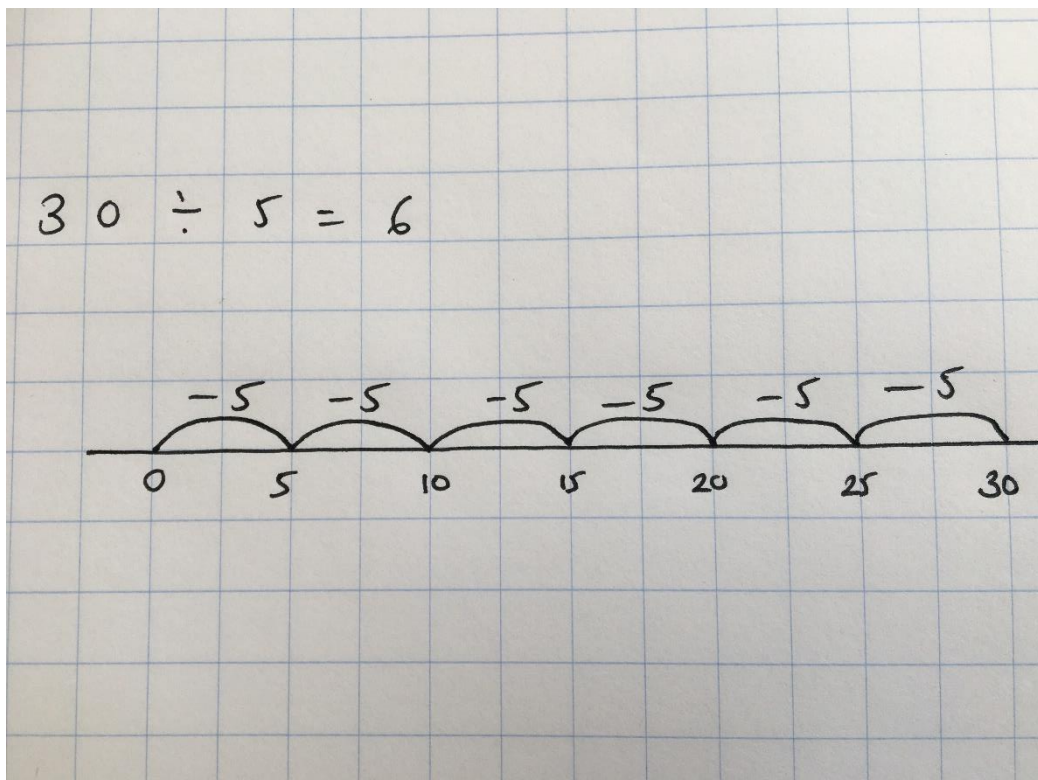 30 ÷ 5 = 6
-5 -5 -5 -5 -5 -5
0 5 10 15 20 25 30